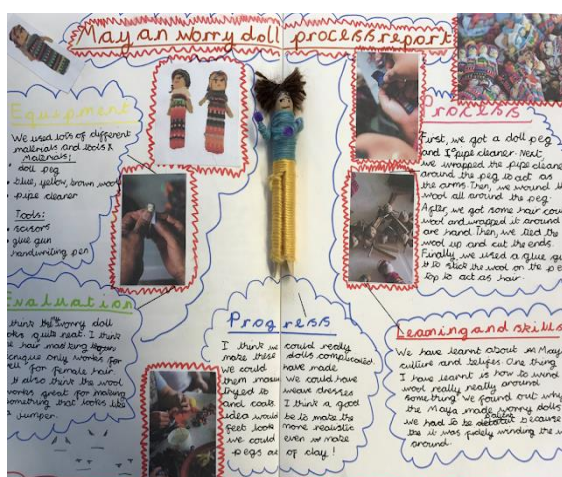 Mayan worry doll process report
Equipment
We used lots of different
materials and tools &
Materials:
• doll peg
• blue, yellow, brown wool
• pipe cleaner
Tools:
• scissors
• glue gun
• handwriting pen
Evaluation
think the worry doll
looks quite neat. I think
e hair making
nique only works for
ell for female hair.
also think the wool
works great for making
something that looks like
a jumper.
Progress
I think we could really
make these dolls complicated
we could have made
them
tryed to weave dresses
and coats. I think a good
idea would be to make the
feet look more realistic
we could even make
pegs out of clay!
Process
First, we got a doll peg
and 1 pipe cleaner. Next
we wrapped the pipe cleaner
around the peg to act as
the arms. Then, we wound
wool all around the peg
After, we got some hair
wool and wrapped it around
are hand. Then, we tied the
wool up and cut the ends.
Finally, we used a glue gu
to stick the wool on the pe
top to act as hair.
Learning and skills
We have learnt about Maya
culture and One thing
I have learnt is how to wind
wool really really around
something. We found out why
the Maya made worry dolls
we had to be because
the it was winding the w
around.